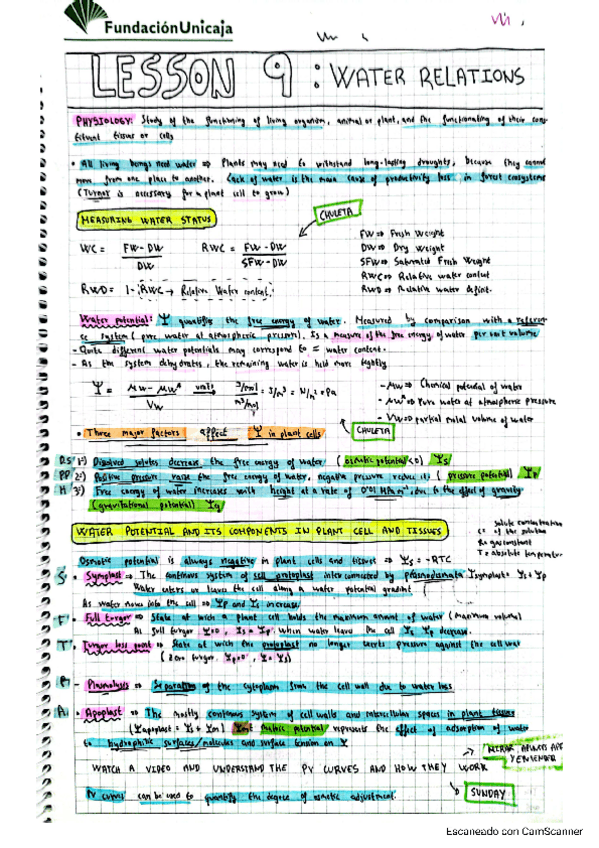 FundaciónUnicaja
LESSON 9: WATER RELATIONS
PHYSIOLOGY: Study of the functioning of living organism, animal or plant, and the functionating of their cons
tituent tissue or cells
• All living beings need water ⇒ Plants may need to withstand long-lasting droughts, because they cannot
move from one place to another. Lack of water is the main cause of productivity loss in forest ecosystems
(Turgor is necessary for a plant cell to grow)
MEASURING WATER STATUS
CHULETA
WC = FW-DW / DW
RWC = FW-DW / SFW-DW
FW ⇒ Fresh Weight
DW ⇒ Dry Weight
SFW ⇒ Saturated Fresh Weight
RWC ⇒ Relative water content
RWD ⇒ Relative water deficit.
RWD = 1-RWC → Relative Water content.
Water potential: Ψ quantifies the free energy of water. Measured by comparison with a referen
ce system (pure water at atmospheric pressure). Is a measure of the free energy of water per unit volume
- Quite different water potentials may correspond to = water content.
- As the system dehydrates, the remaining water is held more tightly
Ψ = μw - μw* / Vw units J/mol / m³/mol = J/m³ = N/m² = Pa
- μw ⇒ Chemical potential of water
- μw* ⇒ Pure water at atmospheric pressure
- Vw ⇒ partial molal volume of water
CHULETA
• Three major factors affect Ψ in plant cells
DS 1º) Dissolved solutes decrease the free energy of water (osmotic potential <0) Ψs
PP 2º) Positive pressure raise the free energy of water, negative pressure reduce it (pressure potential) Ψp
H 3º) Free energy of water increases with height at a rate of 0'01 MPa m⁻¹ due to the effect of gravity
(gravitational potential) Ψg
WATER POTENTIAL AND ITS COMPONENTS IN PLANT CELL AND TISSUES
Solute concentration
of the solution
R = gas constant
T = absolute temperature
Osmotic potential is always negative in plant cells and tissues ⇒ Ψs = -RTC
S - Symplast ⇒ The continous system of cell protoplast interconnected by plasmodesmata Ψsymplast = Ψs + Ψp
Water enters or leave the cell along a water potential gradient
As water moves into the cell ⇒ Ψp and Ψs increase
F - Full turgor ⇒ State at wich a plant cell holds the maximum amount of water (maximum volume)
At full turgor Ψ=0, Ψs = Ψp. When water leave the cell Ψs Ψp decrease.
T - Turgor loss point ⇒ State at wich the protoplast no longer exerts pressure against the cell wall
(Zero turgor. Ψp=0, Ψ = Ψs)
P - Plasmolysis ⇒ Separation of the cytoplasm from the cell wall due to water loss
A - Apoplast ⇒ The mostly continous system of cell walls and intercellular spaces in plant tissue
(Ψapoplast = Ψs + Ψm) matric potential represents the effect of adsorption of water
to hydrophilic surfaces/molecules and surface tension on Ψ
WATCH A VIDEO AND UNDERSTAND THE PV CURVES AND HOW THEY WORK
MIRAR
Y ENTENDER
SUNDAY
PV curves can be used to quantify the degree of osmotic adjustment.
Escaneado con CamScanner